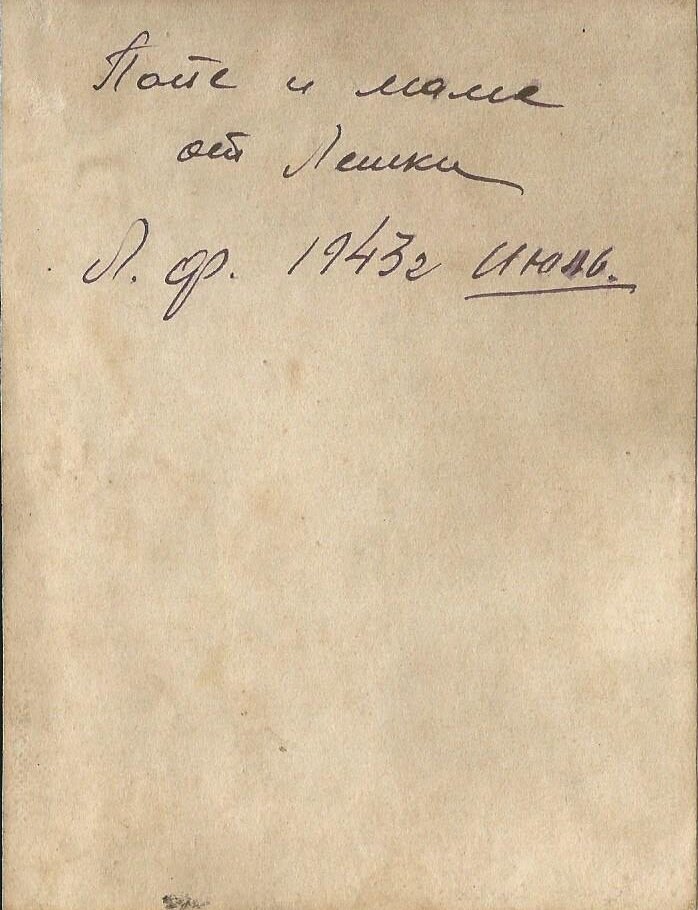 Папе и маме
от Лешки
Л. Ф. 1943г Июль.